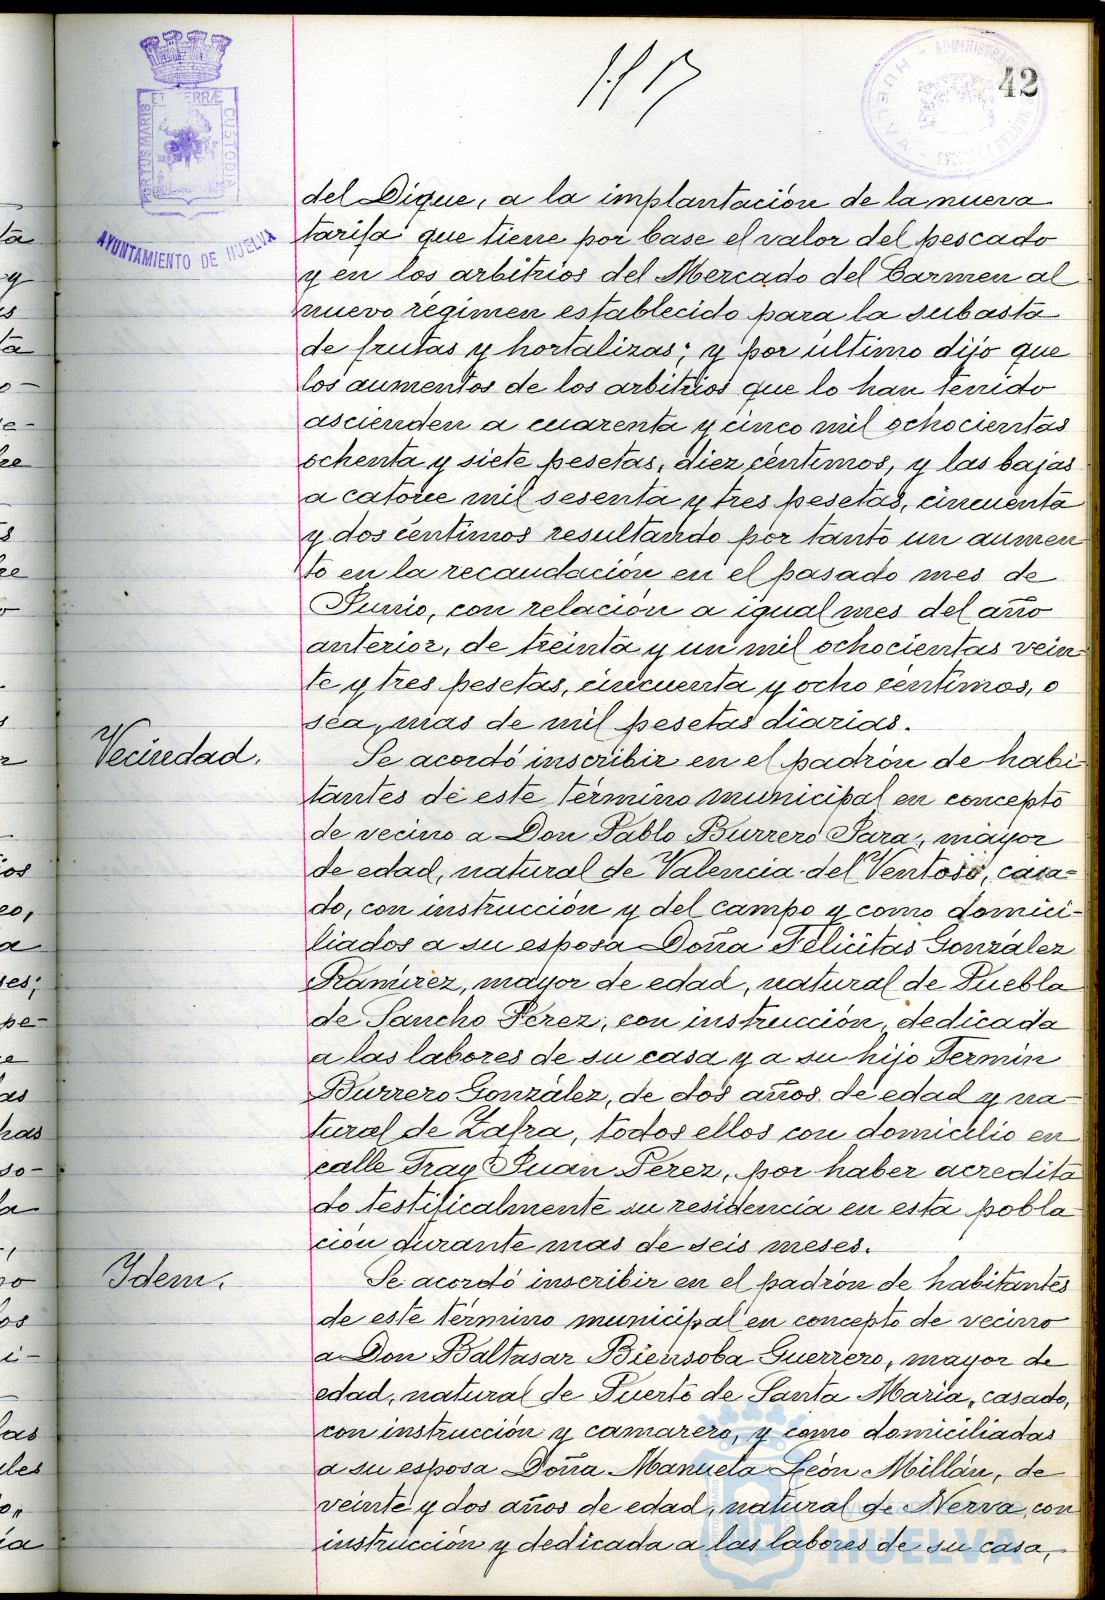 42
PORTUS MARIS ET TERRÆ CUSTODIA
AYUNTAMIENTO DE HUELVA
del Dique, a la implantación de la nueva
tarifa que tiene por base el valor del pescado
y en los arbitrios del Mercado del Carmen al
nuevo régimen establecido para la subasta
de frutas y hortalizas; y por último dijo que
los aumentos de los arbitrios que lo han tenido
ascienden a cuarenta y cinco mil ochocientas
ochenta y siete pesetas, diez céntimos, y las bajas
a catorce mil sesenta y tres pesetas, cincuenta
y dos céntimos resultando por tanto un aumen
to en la recaudación en el pasado mes de
Junio, con relación a igual mes del año
anterior, de treinta y un mil ochocientas vein
te y tres pesetas, cincuenta y ocho céntimos, o
sea, mas de mil pesetas diarias.
Vecindad.
Se acordó inscribir en el padrón de habi
tantes de este término municipal en concepto
de vecino a Don Pablo Burrero Jara, mayor
de edad, natural de Valencia del Ventoso, casa-
do, con instrucción y del campo y como domici-
liados a su esposa Doña Felicitas González
Ramírez, mayor de edad, natural de Puebla
de Sancho Pérez, con instrucción, dedicada
a las labores de su casa y a su hijo Fermín
Burrero González, de dos años de edad y na-
tural de Zafra, todos ellos con domicilio en
calle Fray Juan Pérez, por haber acredita
do testificalmente su residencia en esta pobla
ción durante mas de seis meses.
Idem.
Se acordó inscribir en el padrón de habitantes
de este término municipal en concepto de vecino
a Don Baltasar Biensoba Guerrero, mayor de
edad, natural de Puerto de Santa María, casado,
con instrucción y camarero, y como domiciliadas
a su esposa Doña Manuela León Millán, de
veinte y dos años de edad, natural de Nerva, con
instrucción y dedicada a las labores de su casa,
HUELVA